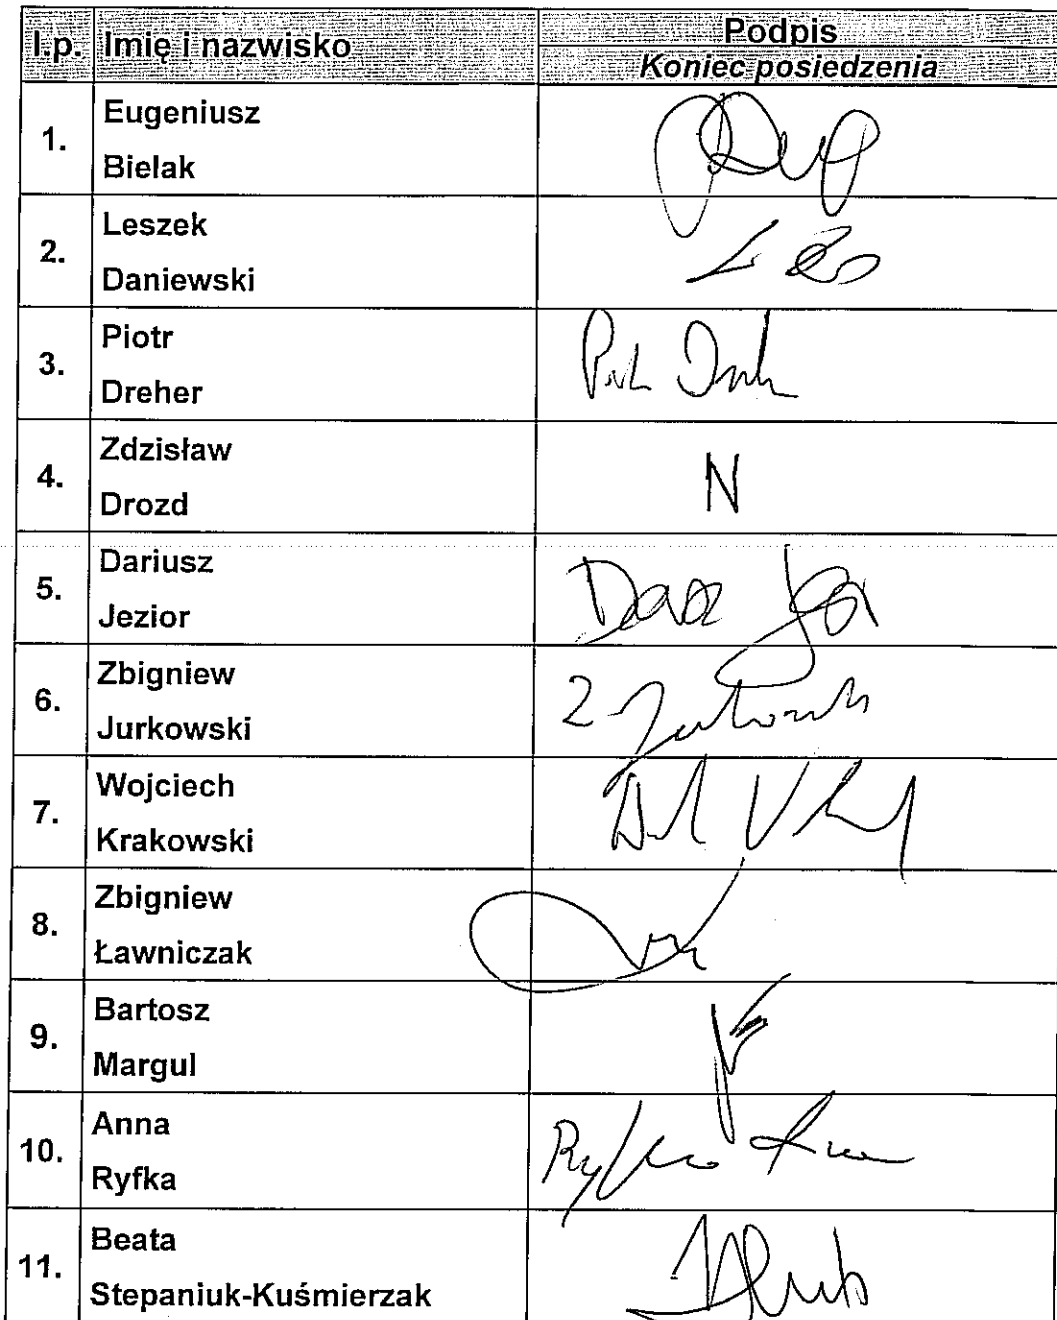 l.p. Imię i nazwisko Podpis
Koniec posiedzenia
1. Eugeniusz
Bielak
2. Leszek
Daniewski
3. Piotr
Dreher
4. Zdzisław
Drozd
N
5. Dariusz
Jezior
6. Zbigniew
Jurkowski
7. Wojciech
Krakowski
8. Zbigniew
Ławniczak
9. Bartosz
Margul
10. Anna
Ryfka
11. Beata
Stepaniuk-Kuśmierzak